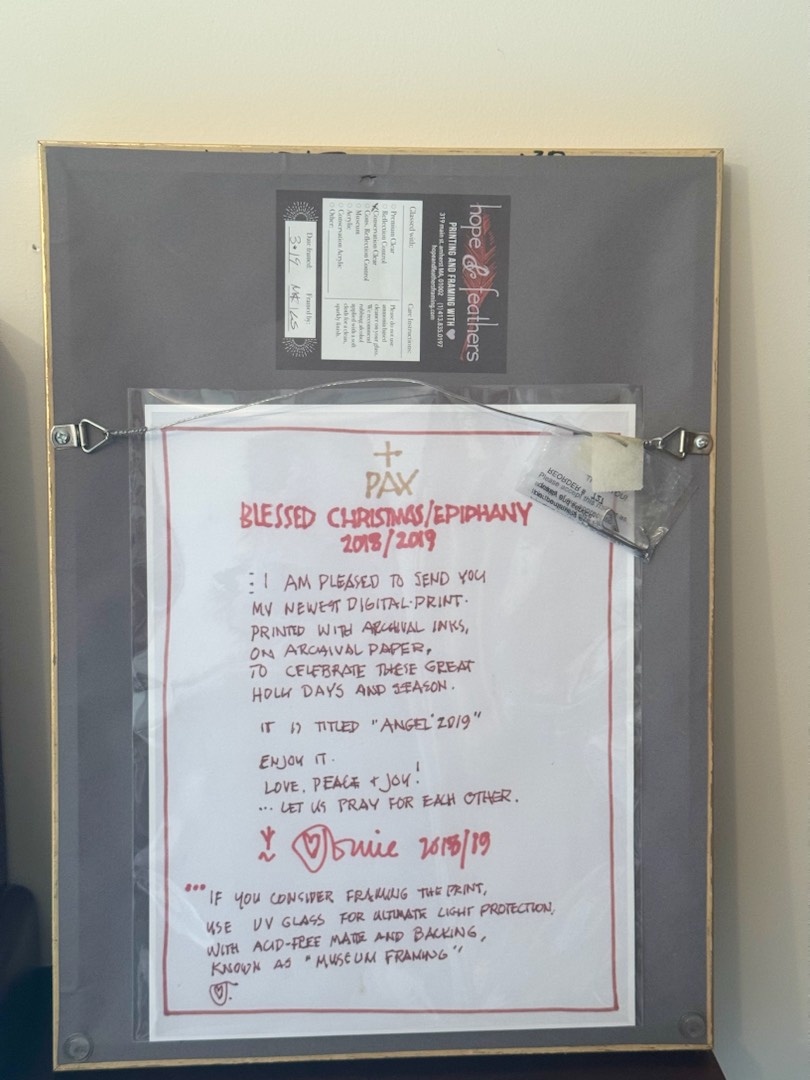 hope & feathers
PRINTING AND FRAMING WITH
319 main st. amherst MA, 01002 (T) 413.835.0197
hopeandfeathersframing.com
Glassed with:
Premium Clear
Reflection Control
Conservation Clear
Cons. Reflection Control
Museum
Acrylic
Conservation Acrylic
Other:
Care Instructions:
Please do not use
ammonia based
cleaner on your glass.
We recommend
rubbing alcohol
applied with a soft
cloth for a clean,
sparkly finish.
Date framed:
3.19
Framed by:
REORDER #
Please
PAX
BLESSED CHRISTMAS/EPIPHANY
2018/2019
I AM PLEASED TO SEND YOU
MY NEWEST DIGITAL-PRINT.
PRINTED WITH ARCHIVAL INKS,
ON ARCHIVAL PAPER,
TO CELEBRATE THESE GREAT
HOLY DAYS AND SEASON.
IT IS TITLED "ANGEL 2019"
ENJOY IT.
LOVE, PEACE + JOY!
... LET US PRAY FOR EACH OTHER.
2018/19
... IF YOU CONSIDER FRAMING THE PRINT,
USE UV GLASS FOR ULTIMATE LIGHT PROTECTION,
WITH ACID-FREE MATTE AND BACKING,
KNOWN AS "MUSEUM FRAMING"